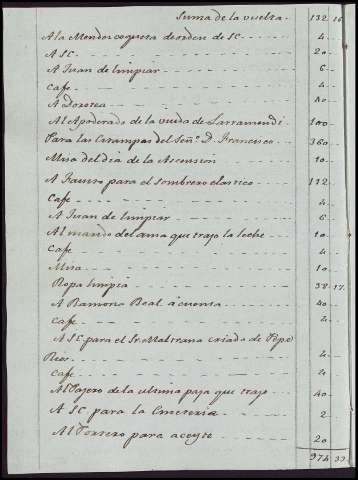 Suma de la vuelta 132 16
A la Mendevoguera de orden de SC 4
A SC 20
A Juan de limpiar 6
Cafe 4
A Dorotea 40
Al Apoderado de la viuda de Larramendi 100
Para las Estampas del Señ.r D. Francisco 360
Misa del dia de la Ascension 10
A para el sombrero elastico 112
Cafe 4
A Juan de limpiar 6
Al marido del ama que trajo la leche 10
Cafe 4
Misa 10
Ropa limpia 38 17
A Ramona Beal á cuenta 40
Cafe 4
A SC para el Sr. Maltrana criado de Pepe
Rios 4
Cafe 4
Al Pajero de la ultima paja que trajo 40
A SC para la 2
Al Torrero para aceyte 20
974 33